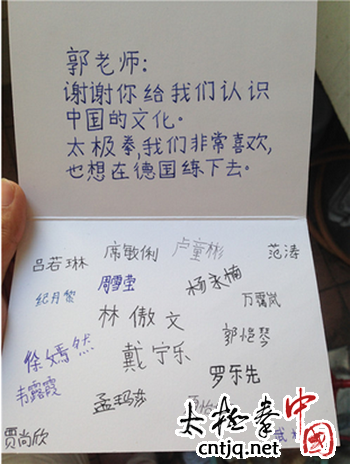 郭老师:
谢谢你给我们认识
中国的文化。
太极拳,我们非常喜欢,
也想在德国练下去。
吕若琳 席敏俐 卢童彬 范涛
纪月莹 周雪莹 杨永楠 万霭岚
林傲文
徐嫣然 戴宁乐 郭恺琴
韦露霞 孟玛莎 罗乐先
贾尚欣
太极拳中国
cntjq.net